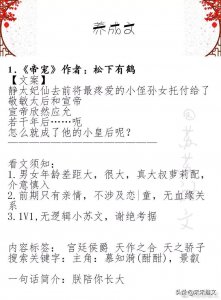 养成文
1.《帝宠》作者：松下有鹤
【文案】
静太妃仙去前将最疼爱的小侄孙女托付给了
敬敏太后和宣帝
宣帝欣然应允
若干年后……呃
怎么就成了他的小皇后呢？
看文须知：
1.男女年龄差距大，很大，真大叔萝莉配，
介意慎入
2.前期只有亲情，不涉及恋|童，无血缘关
系
3.1V1,无逻辑小苏文，谢绝考据
内容标签： 宫廷侯爵 天作之合 天之骄子
搜索关键字：主角：慕知漓(酣酣)，景叡
一句话简介：朕陪你长大